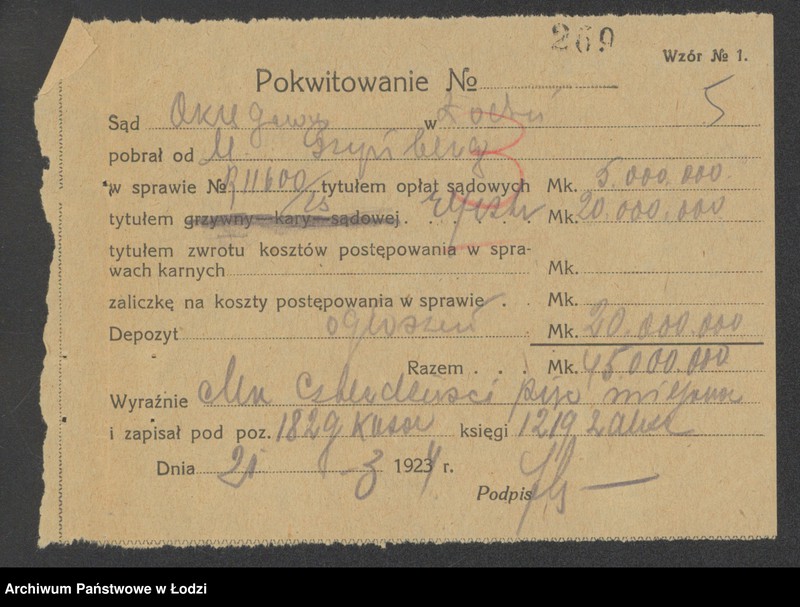 269
Wzór № 1.
Pokwitowanie №
5
Sąd Okręgowy w Łodzi
pobrał od M Grynberg
w sprawie № R11600/25 tytułem opłat sądowych Mk. 5.000.000.
tytułem grzywny kary sądowej Mk. 20.000.000
tytułem zwrotu kosztów postępowania w spra-
wach karnych Mk.
zaliczkę na koszty postępowania w sprawie Mk.
Depozyt ogłoszeń Mk. 20.000.000
Razem Mk. 45000.000
Wyraźnie Mk czterdzieści pięć miljonów
i zapisał pod poz. 1829 księgi 1219
Dnia 21 3 1924 r.
Podpis
Archiwum Państwowe w Łodzi